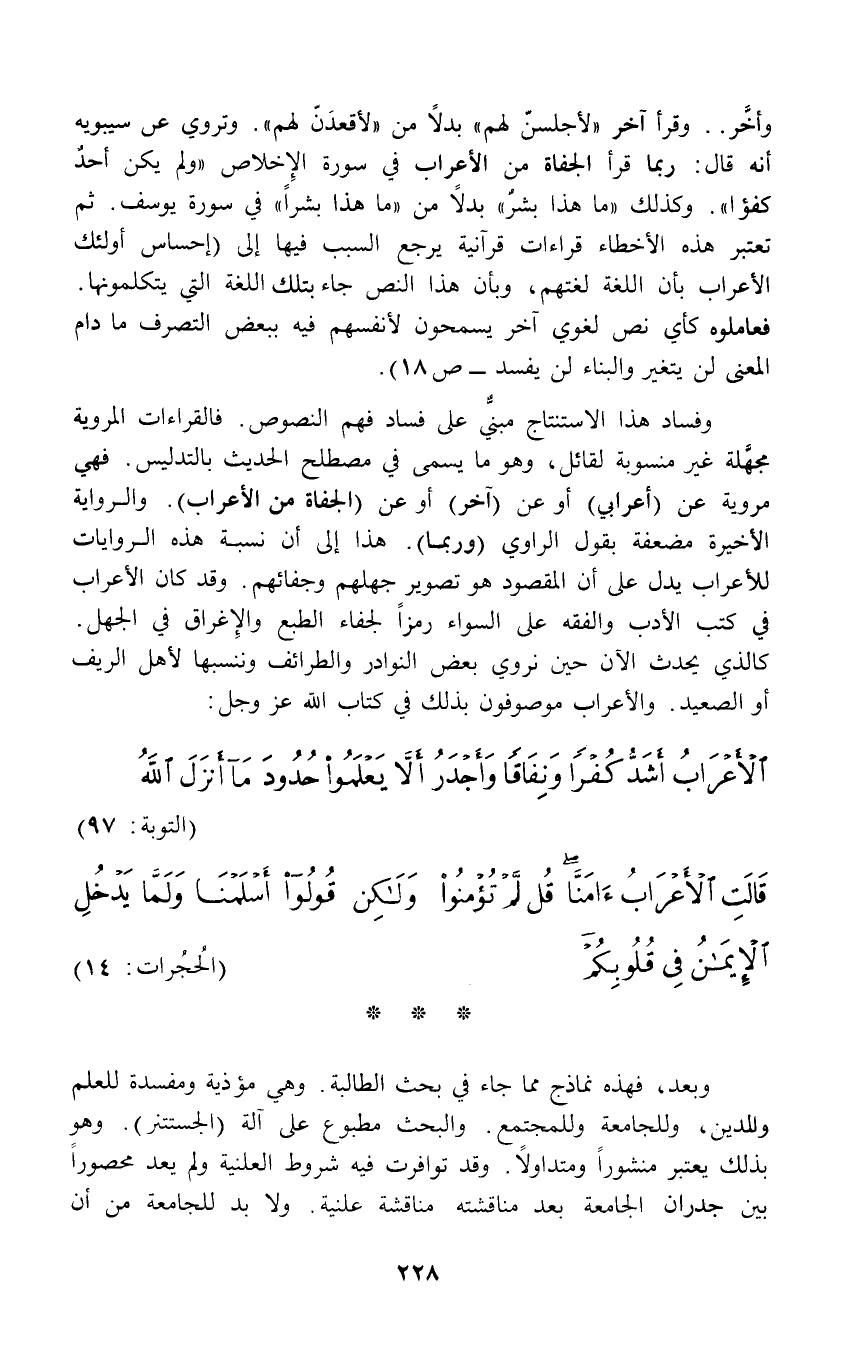 وأخَّر.. وقرأ آخر «لأجلسنّ لهم» بدلاً من «لأقعدَنّ لهم». وتروي عن سيبويه
أنه قال: ربما قرأ الجفاة من الأعراب في سورة الإخلاص «ولم يكن أحدٌ
كفؤا». وكذلك «ما هذا بشرٌ» بدلاً من «ما هذا بشراً» في سورة يوسف. ثم
تعتبر هذه الأخطاء قراءات قرآنية يرجع السبب فيها إلى (إحساس أولئك
الأعراب بأن اللغة لغتهم، وبأن هذا النص جاء بتلك اللغة التي يتكلمونها.
فعاملوه كأي نص لغوي آخر يسمحون لأنفسهم فيه ببعض التصرف ما دام
المعنى لن يتغير والبناء لن يفسد ــ ص١٨).
وفساد هذا الاستنتاج مبنيٌّ على فساد فهم النصوص. فالقراءات المروية
مجهَّلة غير منسوبة لقائل، وهو ما يسمى في مصطلح الحديث بالتدليس. فهي
مروية عن (أعرابي) أو عن (آخر) أو عن (الجفاة من الأعراب). والـرواية
الأخيرة مضعفة بقول الراوي (وربمـا). هذا إلى أن نسبـة هذه الـروايات
للأعراب يدل على أن المقصود هو تصوير جهلهم وجفائهم. وقد كان الأعراب
في كتب الأدب والفقه على السواء رمزاً لجفاء الطبع والإغراق في الجهل.
كالذي يحدث الآن حين نروي بعض النوادر والطرائف وننسبها لأهل الريف
أو الصعيد. والأعراب موصوفون بذلك في كتاب الله عز وجل:
ٱلْأَعْرَابُ أَشَدُّ كُفْرًا وَنِفَاقًا وَأَجْدَرُ أَلَّا يَعْلَمُوا۟ حُدُودَ مَآ أَنزَلَ ٱللَّهُ
(التوبة: ٩٧)
قَالَتِ ٱلْأَعْرَابُ ءَامَنَّا ۖ قُل لَّمْ تُؤْمِنُوا۟ وَلَـٰكِن قُولُوٓا۟ أَسْلَمْنَـا وَلَمَّا يَدْخُلِ
ٱلْإِيمَـٰنُ فِى قُلُوبِكُمْ ۖ (الحُجُرات: ١٤)
* * *
وبعد، فهذه نماذج مما جاء في بحث الطالبة. وهي مؤذية ومفسدة للعلم
وللدين، وللجامعة وللمجتمع. والبحث مطبوع على آلة (الجستتنر). وهو
بذلك يعتبر منشوراً ومتداولاً. وقد توافرت فيه شروط العلنية ولم يعد محصوراً
بين جدران الجامعة بعد مناقشته مناقشة علنية. ولا بد للجامعة من أن
٢٢٨